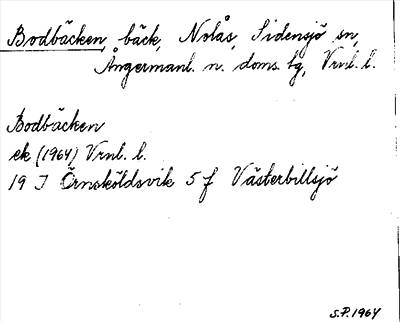 Bodbäcken, bäck, Nolås, Sidensjö sn,
Ångermanl. n. doms. tg, Vrnl. l.
Bodbäcken
ek (1964) Vrnl. l.
19 J Örnsköldsvik 5 f Västerbillsjö
S.P. 1964